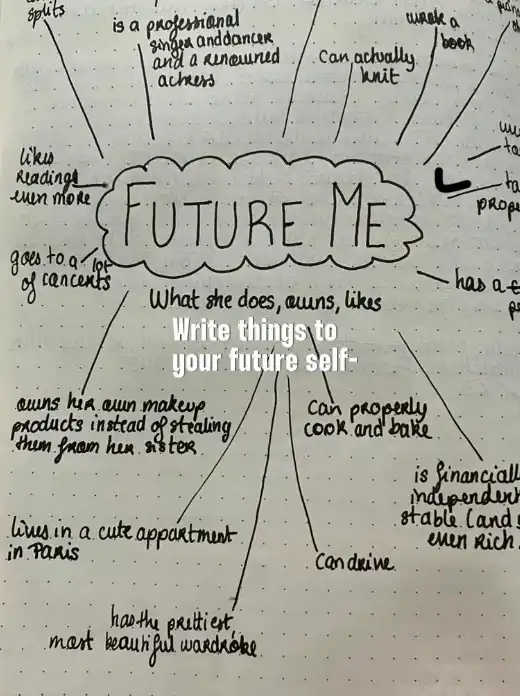 splits
is a professional
singer and dancer
and a renowned
actress
Can actually
knit
wrote a
book
likes
reading
even more
FUTURE ME
goes to a lot
of concerts
has a
What she does, owns, likes
Write things to
your future self-
owns her own makeup
products instead of stealing
them from her sister
Can properly
cook and bake
is financially
independent
stable (and
even rich
lives in a cute appartment
in Paris
Can drive
has the prettiest,
most beautiful wardrobe